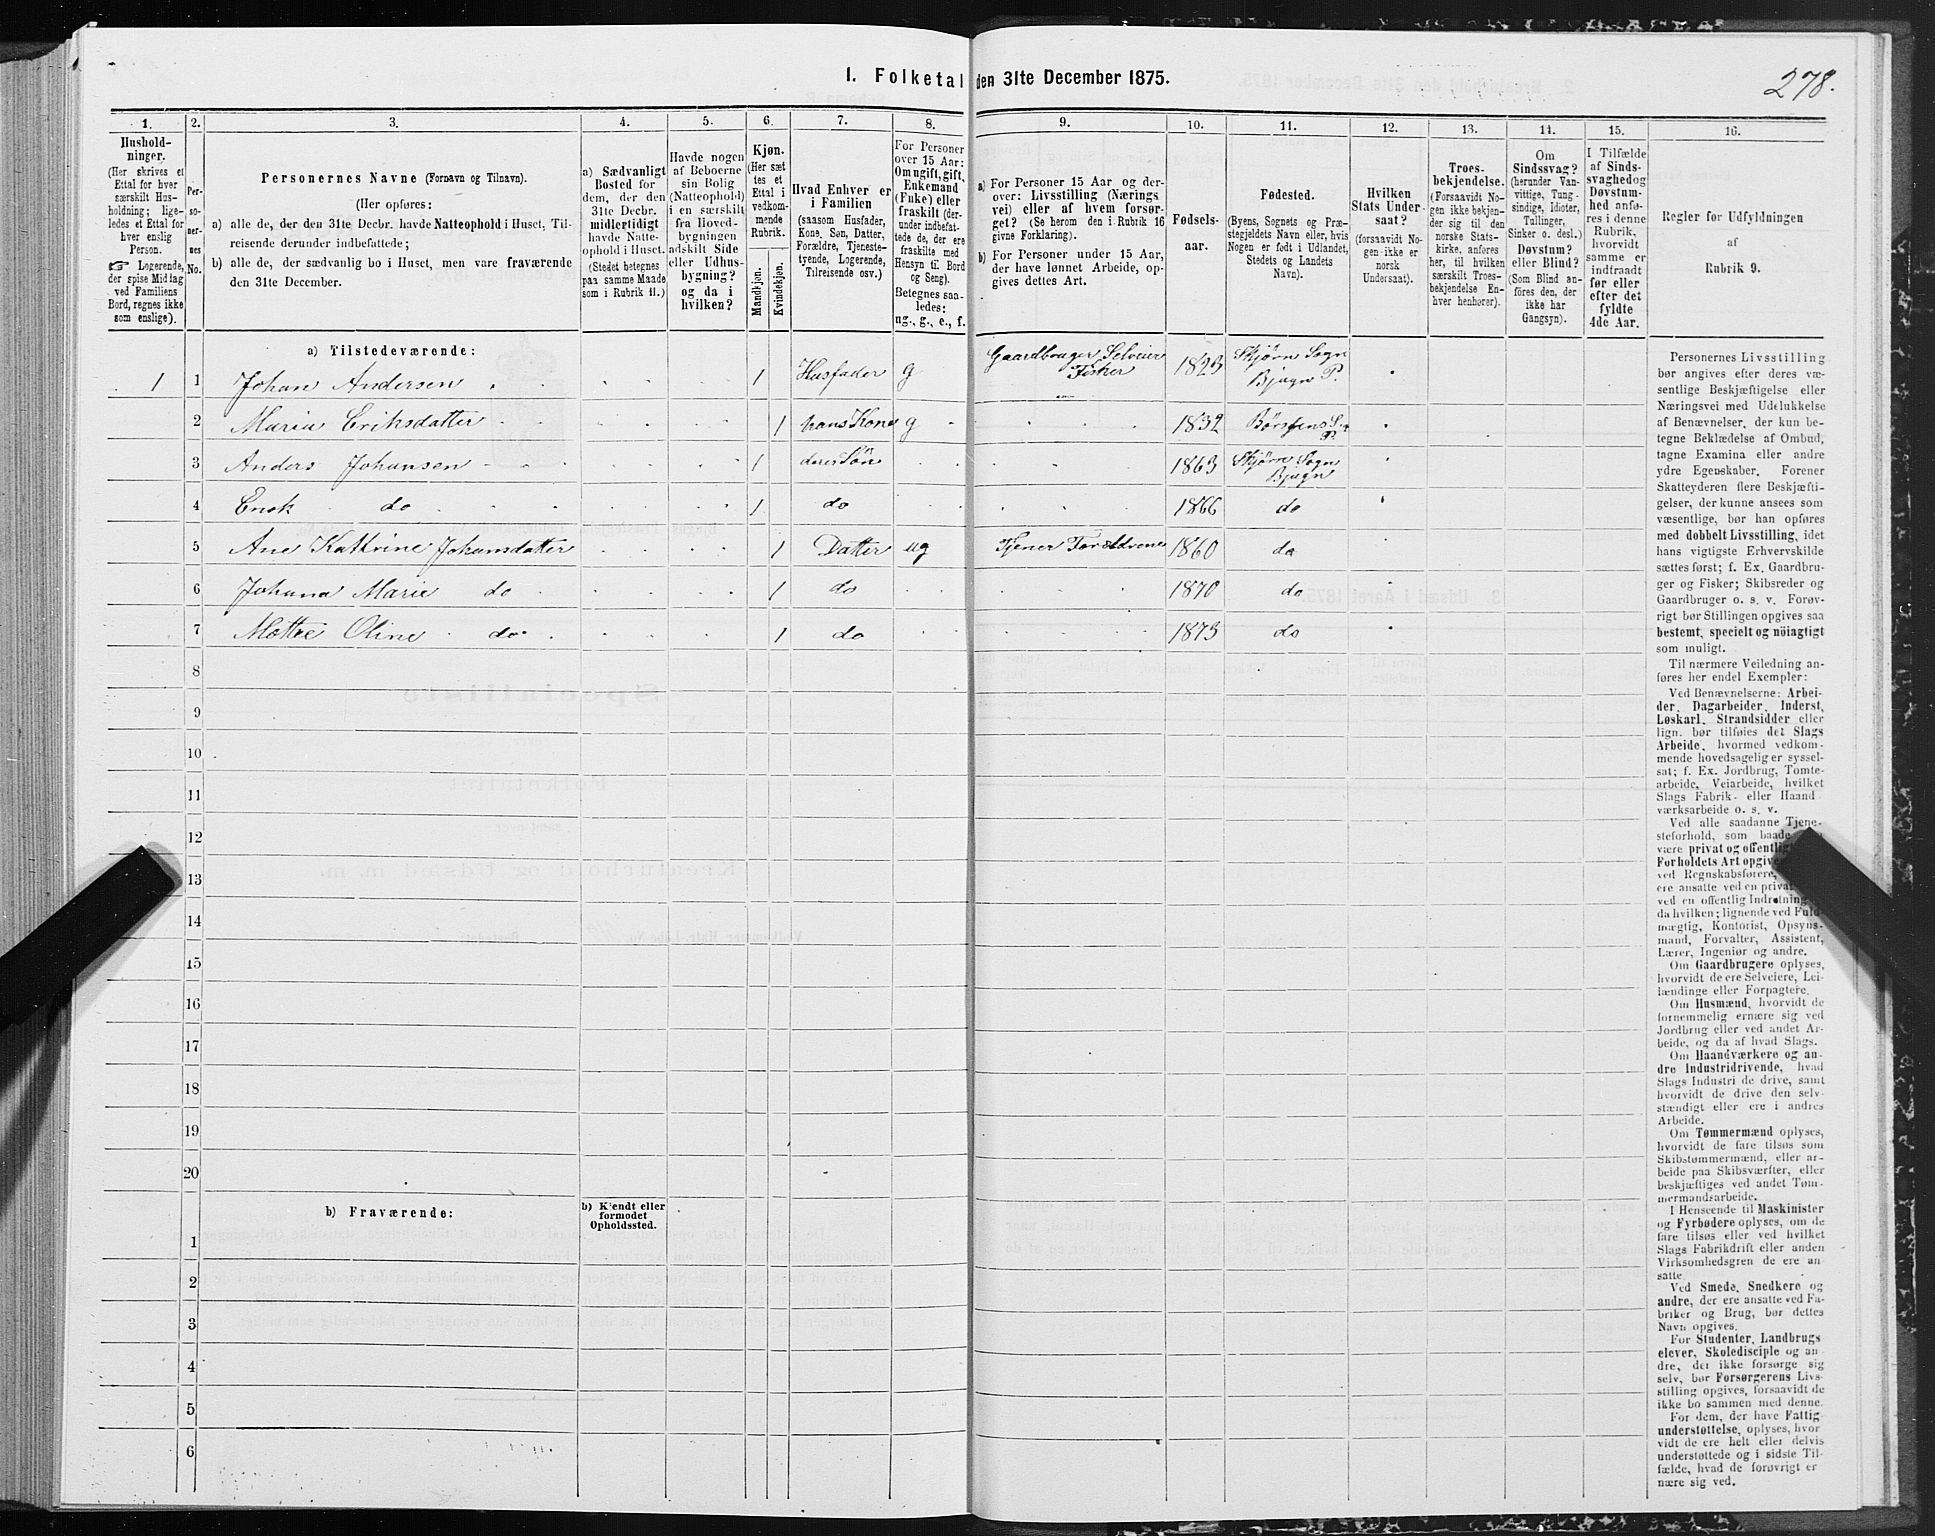 278.
I. Folketal den 31te December 1875.
1. 2. 3. 4. 5. 6. 7. 8. 9. 10. 11. 12. 13. 14. 15. 16.
Hushold-
ninger.
(Her skrives et
Ettal for hver
særskilt Hus-
holdning; lige-
ledes et Ettal for
hver enslig
Person.
☞ Logerende,
der spise Middag
ved Familiens
Bord, regnes ikke
som enslige).
Per-
so-
ner-
nes
No.
Personernes Navne (Fornavn og Tilnavn).
(Her opføres:
a) alle de, der den 31te Decbr. havde Natteophold i Huset, Til-
reisende derunder indbefattede;
b) alle de, der sædvanlig bo i Huset, men vare fraværende
den 31te December.
a) Sædvanligt
Bosted for
dem, der den
31te Decbr.
midlertidigt
havde Natte-
ophold i Huset.
(Stedet betegnes
paa samme Maade
som i Rubrik 11.)
Havde nogen
af Beboerne
sin Bolig
(Natteophold)
i en særskilt
fra Hoved-
bygningen
adskilt Side
eller Udhus-
bygning?
og da i
hvilken?
Kjøn.
(Her sæt
tes et
Ettal i
vedkom-
mende
Rubrik.
Mandkjøn.
Kvindekjøn.
Hvad Enhver er
i Familien
(saasom Husfader,
Kone, Søn, Datter,
Forældre, Tjeneste-
tyende, Logerende,
Tilreisende osv.)
For Personer
over 15 Aar:
Om ugift, gift,
Enkemand
(Enke) eller
fraskilt (der-
under indbefat-
tede de, der ere
fraskilte med
Hensyn til Bord
og Seng).
Betegnes saa-
ledes:
ug., g., e., f.
a) For Personer 15 Aar og der-
over: Livsstilling (Nærings
vei) eller af hvem forsør-
get? (Se herom den i Rubrik 16
givne Forklaring).
b) For Personer under 15 Aar,
der have lønnet Arbeide, op-
gives dettes Art.
Fødsels-
aar.
Fødested.
(Byens, Sognets og Præ-
stegjeldets Navn eller, hvis
Nogen er født i Udlandet,
Stedets og Landets
Navn).
Hvilken
Stats Under-
saat?
(forsaavidt No-
gen ikke er
norsk
Undersaat).
Troes-
bekjendelse.
(Forsaavidt No-
gen ikke bekjen-
der sig til den
norske Stats-
kirke, anføres
her, til hvilken
særskilt Troes-
bekjendelse En-
hver henhører).
Om
Sindssvag?
(herunder Van-
vittige, Tung-
sindige, Idioter,
Tullinger,
Sinker o. desl.)
Døvstum?
eller Blind?
(Som Blind an-
føres den, der
ikke har
Gangsyn).
I Tilfælde
af Sinds-
svaghed og
Døvstum-
hed anfø-
res i denne
Rubrik,
hvorvidt
samme er
indtraadt
før eller
efter det
fyldte
4de Aar.
Regler for Udfyldningen
af
Rubrik 9.
a) Tilstedeværende:
1 1 Johan Andersen 1 Husfader g Gaardbruger Selveier Fisker 1823 Skjørn Sogn Bjugn P.
2 Maria Eriksdatter 1 hans Kone g 1832 Børsens S. P.
3 Anders Johansen 1 deres Søn 1863 Skjørn Sogn Bjugn
4 Enok do 1 do 1866 do
5 Ane Kathrine Johansdatter 1 Datter ug Tjener Forældrene 1860 do
6 Johana Marie do 1 do 1870 do
7 Mette Oline do 1 do 1873 do
8
9
10
11
12
13
14
15
16
17
18
19
20
b) Fraværende:
b) Kjendt eller
formodet
Opholdssted.
1
2
3
4
5
6
Personernes Livsstilling
bør angives efter deres væ-
sentlige Beskjæftigelse eller
Næringsvei med Udelukkelse
af Benævnelser, der kun be-
tegne Beklædelse af Ombud,
tagne Examina eller andre
ydre Egenskaber. Forener
Skatteyderen flere Beskjæfti-
gelser, der kunne ansees som
væsentlige, bør han opføres
med dobbelt Livsstilling, idet
hans vigtigste Erhvervskilde
sættes først; f. Ex. Gaardbru-
ger og Fisker; Skibsreder og
Gaardbruger o. s. v. Forøv-
rigt bør Stillingen opgives saa
bestemt, specielt og nöiagtigt
som muligt.
Til nærmere Veiledning an-
føres her endel Exempler:
Ved Benævnelserne: Arbei-
der, Dagarbeider, Inderst,
Løskarl, Strandsidder eller
lign. bør tilføies det Slags
Arbeide, hvormed vedkom-
mende hovedsagelig er syssel-
sat; f. Ex. Jordbrug, Tomte-
arbeide, Veiarbeide, hvilket
Slags Fabrik- eller Haand
værksarbeide o. s. v.
Ved alle saadanne Tjene-
steforhold, som baade
være privat og offentligt
Forholdets Art opgives
ved Regnskabsførere,
ere ansatte ved en privat
ved en offentlig Indretning
da hvilken; lignende ved Fuld-
mægtig, Kontorist, Opsyns-
mand, Forvalter, Assistent,
Lærer, Ingeniør og andre.
Om Gaardbrugere oplyses,
hvorvidt de ere Selveiere, Lei-
lændinge eller Forpagtere.
Om Husmænd, hvorvidt de
fornemmelig ernære sig ved
Jordbrug eller ved andet Ar-
beide, og da af hvad Slags.
Om Haandværkere og an-
dre Industridrivende, hvad
Slags Industri de drive, samt
hvorvidt de drive den selv-
stændigt eller ere i andres
Arbeide.
Om Tømmermænd oplyses,
hvorvidt de fare tilsøs som
Skibstømmermænd, eller ar-
beide paa Skibsværfter, eller
beskjæftiges ved andet Tøm-
mermandsarbeide.
I Henseende til Maskinister
og Fyrbødere oplyses, om de
fare tilsøs eller ved hvilket
Slags Fabrikdrift eller anden
Virksomhedsgren de ere an-
satte.
Ved Smede, Snedkere og
andre, der ere ansatte ved Fa-
briker og Brug, bør dettes
Navn opgives.
For Studenter, Landbrugs
elever, Skoledisciple og an
dre, der ikke forsørge sig
selv, bør Forsørgerens Livs-
stilling opgives, forsaavidt de
ikke bo sammen med denne.
For dem, der have Fattig-
understøttelse, oplyses, hvor
vidt de ere helt eller delvis
understøttede og i sidste Til-
fælde, hvad de forøvrigt er
nære sig ved.